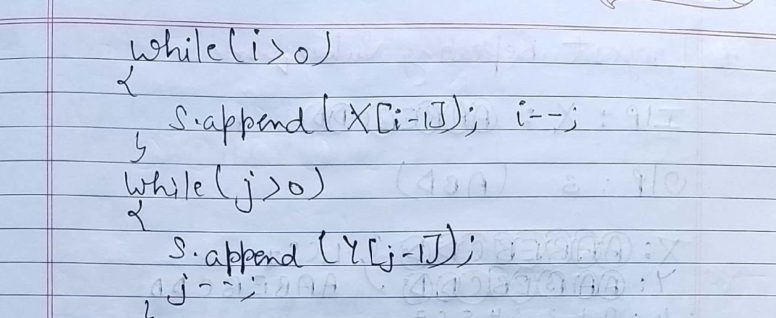 while(i>0)
{
S.append(X[i-1]); i--;
}
while(j>0)
{
S.append(Y[j-1]);
j--;
}